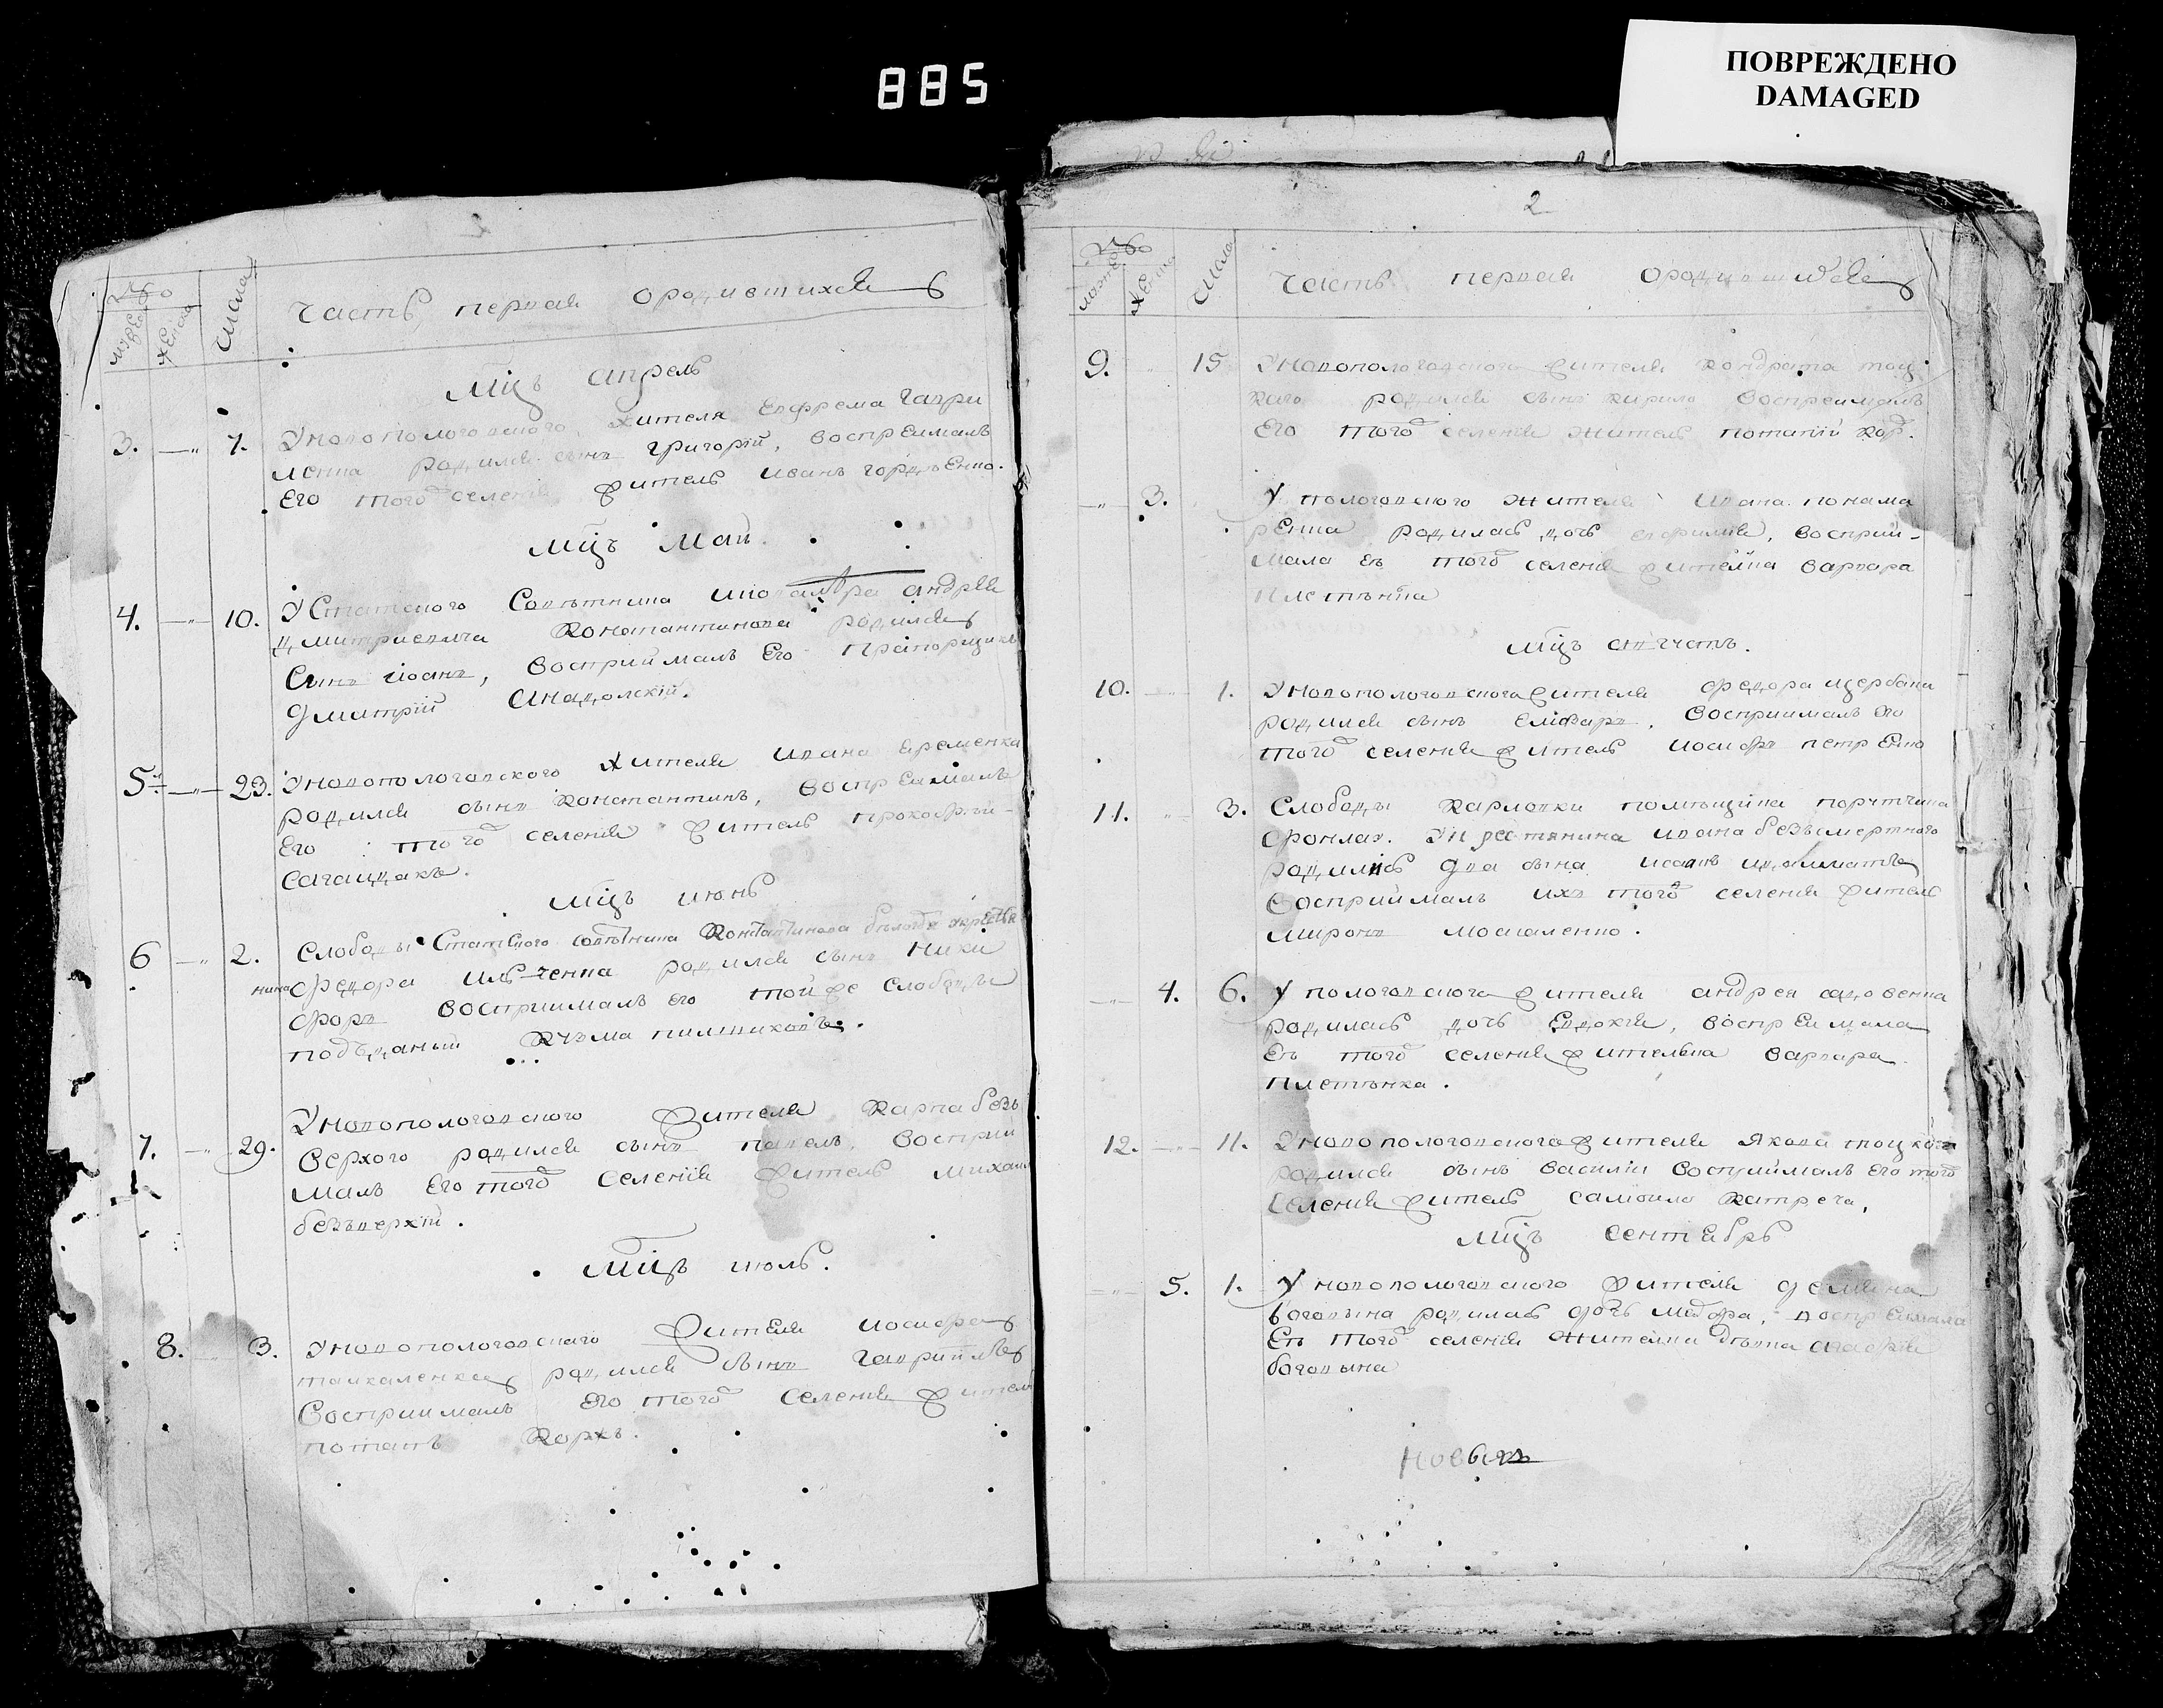 885
ПОВРЕЖДЕНО
DAMAGED
№
мужеска
женска
числа
часть первая о родившихся
Мцъ апрель
3. —„— 7. У новопологовского жителя Ефрема Гаври
ленка родился сынъ Григорій, воспреималъ
Его того селенія житель Иванъ Гордѣенко.
Мцъ Май
4. —„— 10. У Статского Совѣтника и кавалера Андрея
Дмитриевича Константинова родился
Сынъ Иоанъ, восприималъ Его Прапорщикъ
Дмитрій Анадолскій.
5. —„— 23. У новопологовского жителя Ивана Еременка
родился сынъ Константинъ, воспреималъ
Его того селенія житель Прокофій
Сагайдакъ.
Мцъ июнь
6 —„ 2. Слободы Статского совѣтника Константинова
нина Федора Ильченка родился сынъ Ники
форъ восприималъ его той же слободы
подъданый Кузма
7. —„ 29. У новопологовского жителя Карпа безъ
верхого родился сынъ Павелъ, восприи
малъ Его того селенія житель Михаил
безъверхій.
Мцъ июль.
8. 3. У новопологовского жителя Иосифа
родился сынъ Гавриилъ
Восприималъ Его того селенія жител
Потапъ Коржъ.
2
№
мужеска
женска
числа
часть первая о родившихся
9. „ 15 У новопологовского жителя Кондрата Тоц
кого родился сынъ Кирило воспреималъ
Его того селенія житель Потапій Кор.
—„— 3. У пологовского жителя Ивана Понама
ренка родилась дочь Ефимія, восприй-
мала Еѣ того селенія жителка Варвара
Плетѣнка
Мцъ августъ.
10. 1. У новопологовского жителя Федора Щербани
родился сынъ, восприималъ Его
того селенія житель Иосифъ Петренко
11. „ 3. Слободы Карловки помѣщика порутчика
У крестянина Ивана безъсмертного
родилисъ два сына
восприималъ ихъ того селенія житель
Миронъ Москаленко.
—„— 4. 6. У пологовского жителя Андрея Садовенка
родилась дочь Евдокія, воспреимала
Еѣ того селенія жителька Варвара
Плетѣнка.
12. —„— 11. У новопологовского жителя Якова Тоцкого
родился сынъ Василіи восприималъ Его того
селенія житель Самойло Катреча,
Мцъ сентябрь
—„— 5. 1. У новопологовского жителя
родилась дочь, воспреимала
Еѣ того селенія жителка дѣвка Агафія